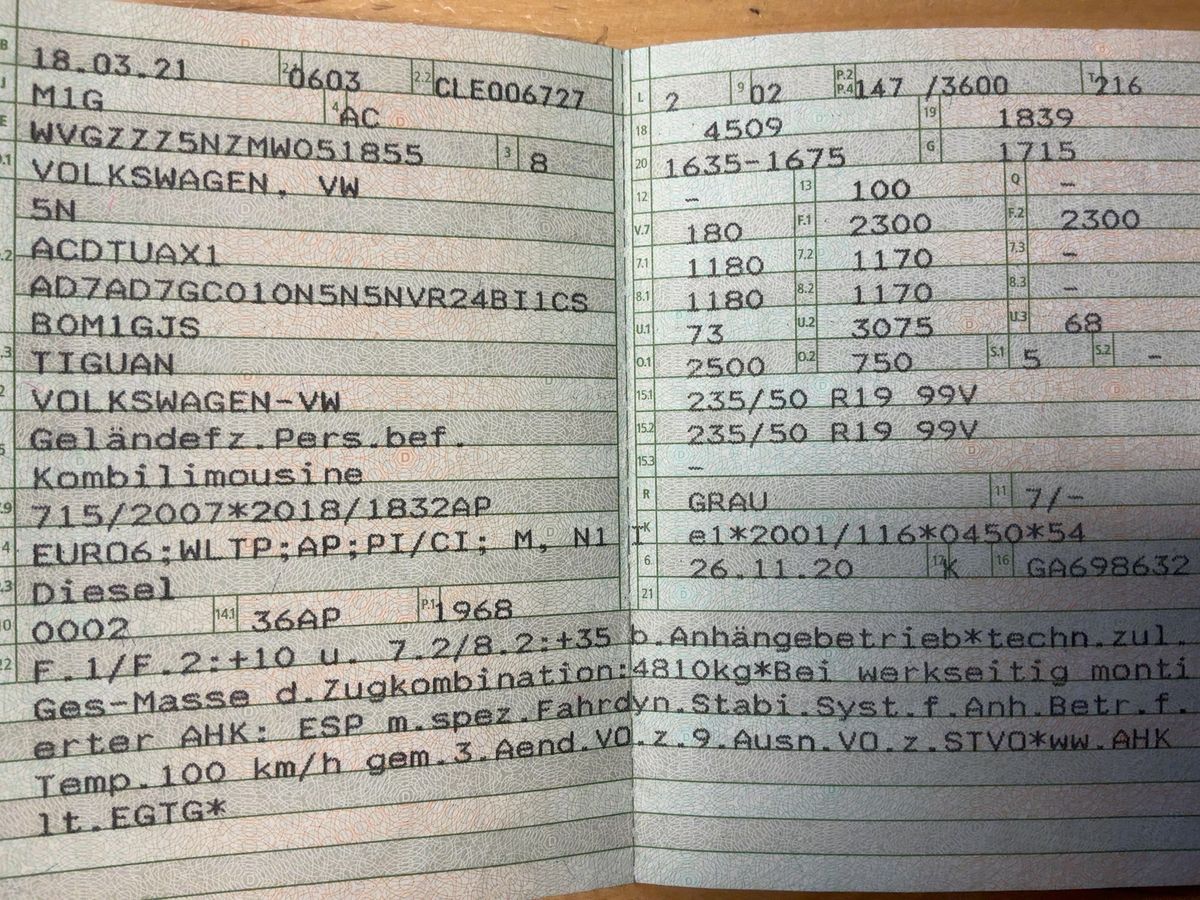 B 18.03.21 2.1 0603 2.2 CLE006727
J M1G 4 AC
E WVGZZZ5NZMW051855 3 8
D.1 VOLKSWAGEN, VW
5N
D.2 ACDTUAX1
AD7AD7GC010N5N5NVR24BI1CS
BOM1GJS
D.3 TIGUAN
2 VOLKSWAGEN-VW
5 Geländefz.Pers.bef.
Kombilimousine
V.9 715/2007*2018/1832AP
14 EURO6;WLTP;AP;PI/CI; M, N1 I
P.3 Diesel
10 0002 14.1 36AP P.1 1968
22 F.1/F.2:+10 u. 7.2/8.2:+35 b.Anhängebetrieb*techn.zul.
Ges-Masse d.Zugkombination:4810kg*Bei werkseitig monti
erter AHK: ESP m.spez.Fahrdyn.Stabi.Syst.f.Anh.Betr.f.
Temp.100 km/h gem.3.Aend.VO.z.9.Ausn.VO.z.STVO*ww.AHK
lt.EGTG*
L 2 9 02 P.2 P.4 147 /3600 T 216
18 4509 19 1839
20 1635-1675 G 1715
12 – 13 100 Q –
V.7 180 F.1 2300 F.2 2300
7.1 1180 7.2 1170 7.3 –
8.1 1180 8.2 1170 8.3 –
U.1 73 U.2 3075 U.3 68
O.1 2500 O.2 750 S.1 5 S.2 –
15.1 235/50 R19 99V
15.2 235/50 R19 99V
15.3 –
R GRAU 11 7/–
K e1*2001/116*0450*54
6 26.11.20 17 K 16 GA698632
21